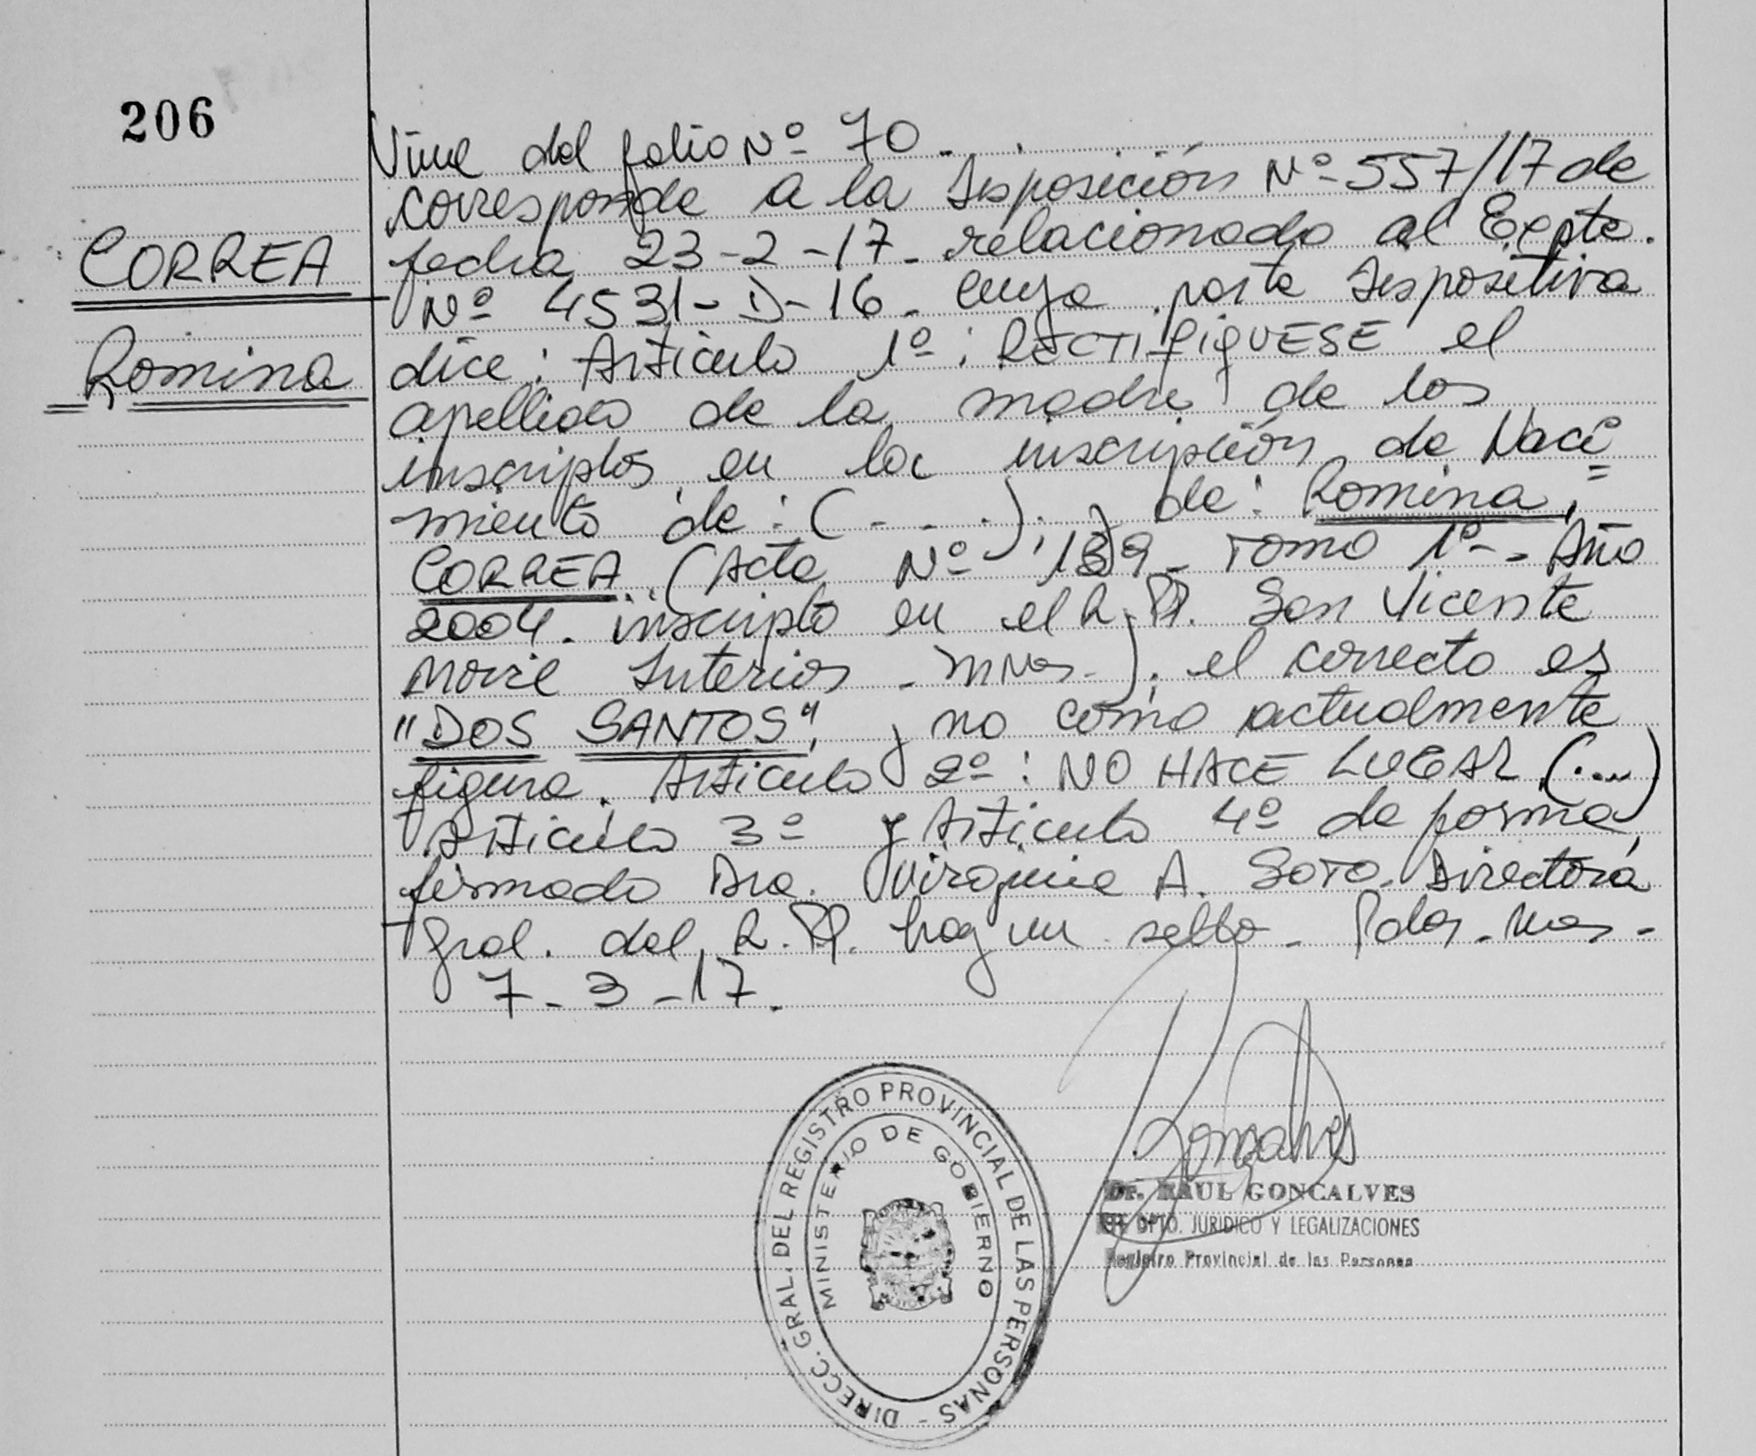 206
CORREA
Romina
Viene del folio Nº 70 -
corresponde a la Disposición Nº 557/17 de
fecha 23-2-17- relacionado al Expte.
Nº 4531-D-16- cuya parte dispositiva
dice: Artículo 1º: RECTIFIQUESE el
apellido de la madre de los
inscriptos en la inscripción de Naci=
miento de: (- - -). y de: Romina,
CORREA (Acta Nº 139- Tomo 1º-. Año
2004. inscripto en el R.P. San Vicente
Movil Interior - Mnes-). el correcto es
"DOS SANTOS", y no como actualmente
figura. Artículo 2º: NO HACE LUGAR (....)
Artículo 3º y Artículo 4º de forma,
firmado Dra. Virginia A. Soto- Directora
Gral. del R.P. hay un sello- Pdas. Mnes-
7-3-17.
DIRECC. GRAL. DEL REGISTRO PROVINCIAL DE LAS PERSONAS -
MINISTERIO DE GOBIERNO
Goncalves
Dr. RAUL GONCALVES
DPTO. JURIDICO Y LEGALIZACIONES
Registro Provincial de las Personas